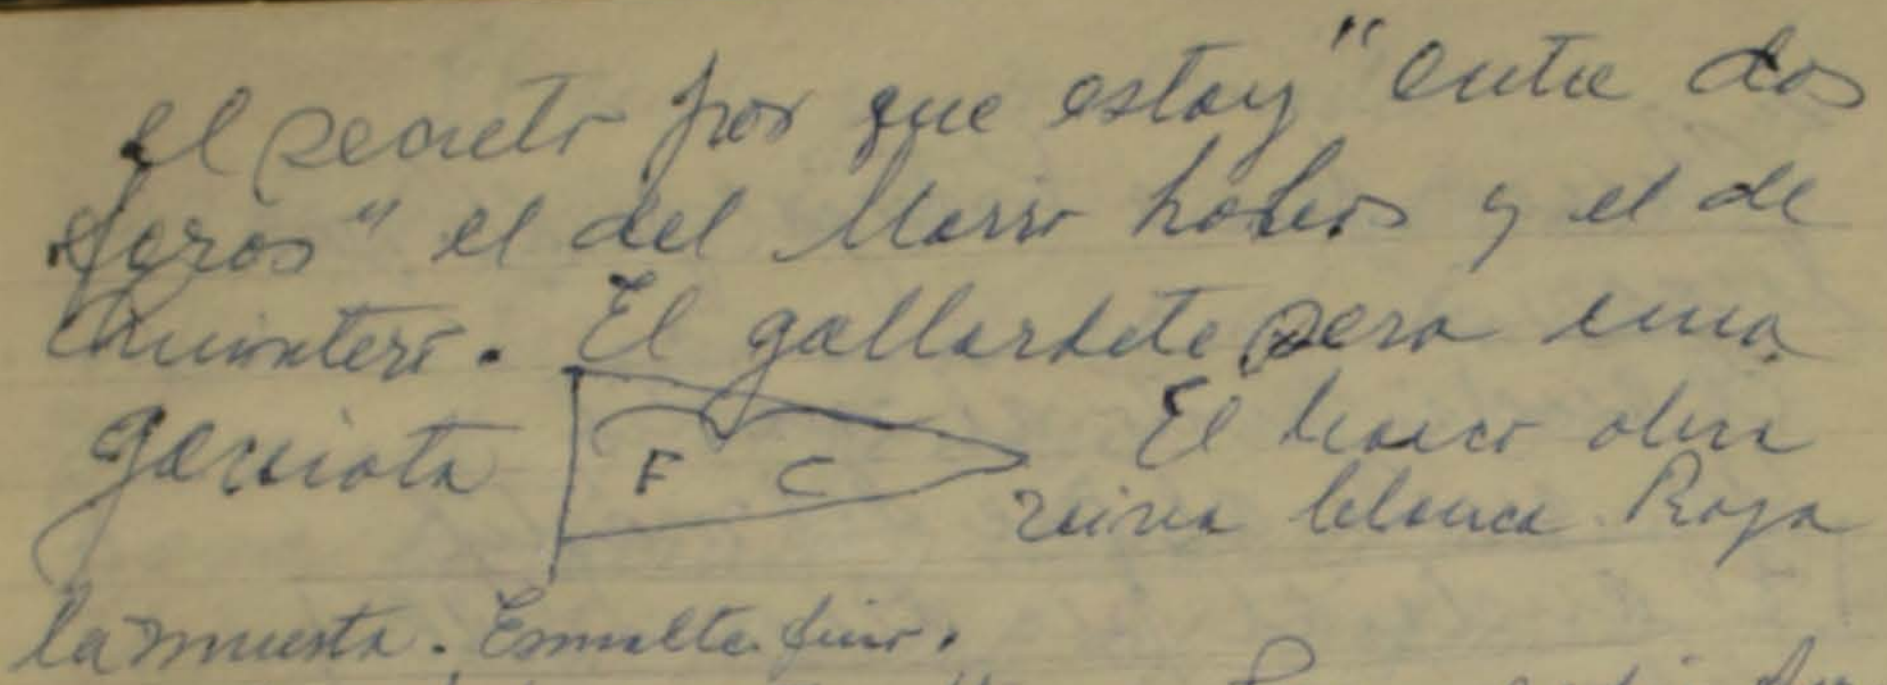 el secreto por que estoy "entre dos
faros" el del Morro Lobos y el de
Quintero. El gallardete sera una
gaviota
F C
El barco obra
reina blanca. Roja
la muerta. Esmalte fino.